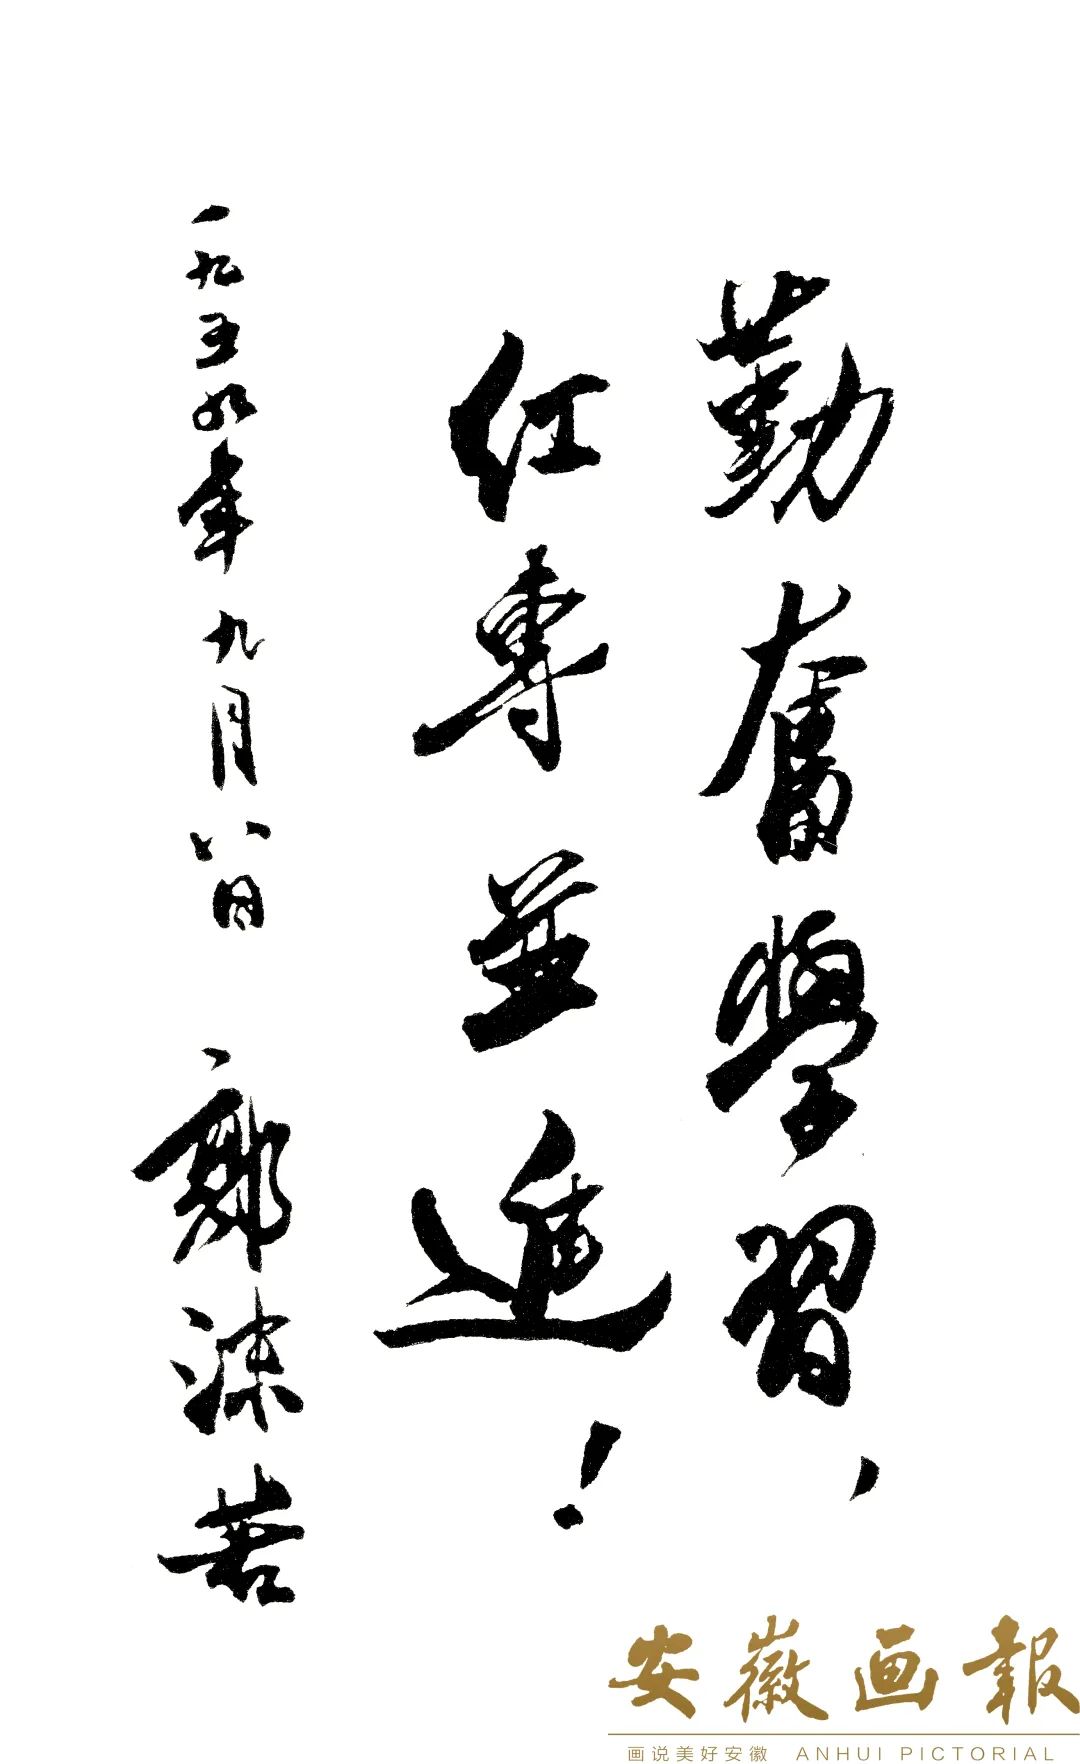 勤奮學習、
红專並進！
一九五九年九月八日
郭沫若
安徽画報
画说美好安徽 ANHUI PICTORIAL